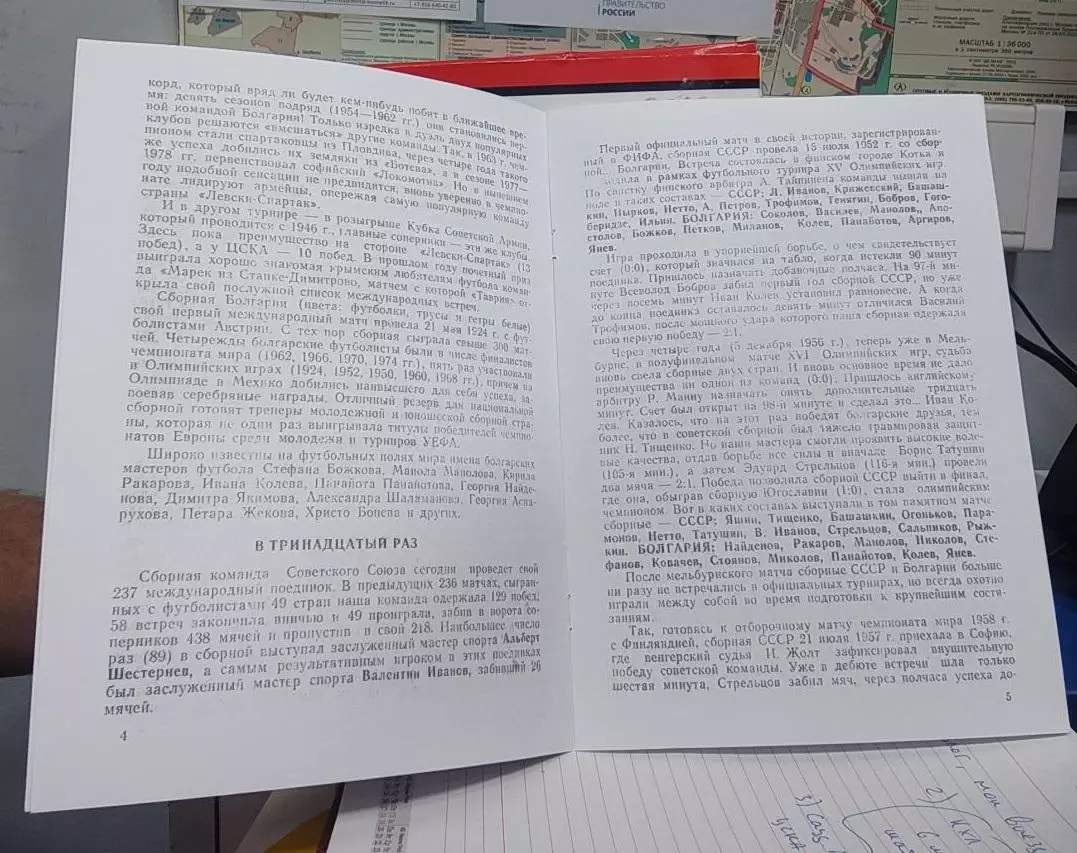 ПРАВИТЕЛЬСТВО
РОССИИ
МАСШТАБ 1:36 000
корд, который вряд ли будет кем-нибудь побит в ближайшее вре-
мя: девять сезонов подряд (1954—1962 гг.) они становились пер-
вой командой Болгарии! Только изредка в дуэль двух популярных
клубов решаются «вмешаться» другие команды. Так, в 1963 г. чем-
пионом стали спартаковцы из Пловдива, через четыре года такого
же успеха добились их земляки из «Ботева», а в сезоне 1977—
1978 гг. первенствовал софийский «Локомотив». Но в нынешнем
году подобной сенсации не предвидится, вновь уверенно в чемпио-
нате лидируют армейцы, опережая самую популярную команду
страны «Левски-Спартак».
И в другом турнире — в розыгрыше Кубка Советской Армии,
который проводится с 1946 г., главные соперники — эти же клубы.
Здесь пока преимущество на стороне «Левски-Спартак» (13
побед), а у ЦСКА — 10 побед. В прошлом году почетный приз
выиграла хорошо знакомая крымским любителям футбола коман-
да «Марек из Станке-Димитрово, матчем с которой «Таврия» от-
крыла свой послужной список международных встреч.
Сборная Болгарии (цвета: футболки, трусы и гетры белые)
свой первый международный матч провела 21 мая 1924 г. с фут-
болистами Австрии. С тех пор сборная сыграла свыше 300 мат-
чей. Четырежды болгарские футболисты были в числе финалистов
чемпионата мира (1962, 1966, 1970, 1974 гг.), пять раз участвовали
в Олимпийских играх (1924, 1952, 1950, 1960, 1968 гг.), причем на
Олимпиаде в Мехико добились наивысшего для себя успеха, за-
воевав серебряные награды. Отличный резерв для национальной
сборной готовят тренеры молодежной и юношеской сборной стра-
ны, которая не один раз выигрывала титулы победителей чемпио-
натов Европы среди молодежи и турниров УЕФА.
Широко известны на футбольных полях мира имена болгарских
мастеров футбола Стефана Божкова, Манола Манолова, Кирила
Ракарова, Ивана Колева, Панайота Панайотова, Георгия Найде-
нова, Димитра Якимова, Александра Шаламанова, Георгия Аспа-
рухова, Петара Жекова, Христо Бонева и других.
В ТРИНАДЦАТЫЙ РАЗ
Сборная команда Советского Союза сегодня проведет свой
237 международный поединок. В предыдущих 236 матчах, сыгран-
ных с футболистами 49 стран наша команда одержала 129 побед,
58 встреч закончила вничью и 49 проиграла, забив в ворота со-
перников 438 мячей и пропустив в свой 218. Наибольшее число
раз (89) в сборной выступал заслуженный мастер спорта Альберт
Шестернев, а самым результативным игроком в этих поединках
был заслуженный мастер спорта Валентин Иванов, забивший 26
мячей.
4
Первый официальный матч в своей истории, зарегистрирован-
ный в ФИФА, сборная СССР провела 15 июля 1952 г. со сбор-
ной Болгарии. Встреча состоялась в финском городе Котка и
ходила в рамках футбольного турнира XV Олимпийских игр.
По свистку финского арбитра А. Тайпинена команды вышли на
поле в таких составах — СССР: Л. Иванов, Крижевский, Башаш-
кин, Нырков, Нетто, А. Петров, Трофимов, Тенягин, Бобров, Гого-
беридзе, Ильин. БОЛГАРИЯ: Соколов, Василев, Манолов,, Апо-
столов, Божков, Петков, Миланов, Колев, Панайотов, Аргиров,
Янев.
Игра проходила в упорнейшей борьбе, о чем свидетельствует
счет (0:0), который значился на табло, когда истекли 90 минут
поединка. Пришлось назначать добавочные полчаса. На 97-й ми-
нуте Всеволод Бобров забил первый гол сборной СССР, но уже
через восемь минут Иван Колев установил равновесие. А когда
до конца поединка оставалось девять минут отличился Василий
Трофимов, после мощного удара которого наша сборная одержала
свою первую победу — 2:1.
Через четыре года (5 декабря 1956 г.), теперь уже в Мель-
бурне, в полуфинальном матче XVI Олимпийских игр, судьба
вновь свела сборные двух стран. И вновь основное время не дало
преимущества ни одной из команд (0:0). Пришлось английскому
арбитру Р. Манну назначать опять дополнительные тридцать
минут. Счет был открыт на 98-й минуте и сделал это... Иван Ко-
лев. Казалось, что на этот раз победят болгарские друзья, тем
более, что в советской сборной был тяжело травмирован защит-
ник Н. Тищенко. Но наши мастера смогли проявить высокие воле-
вые качества, отдав борьбе все силы и вначале Борис Татушин
(105-я мин.), а затем Эдуард Стрельцов (116-я мин.) провели
два мяча — 2:1. Победа позволила сборной СССР выйти в финал,
где она, обыграв сборную Югославии (1:0), стала олимпийским
чемпионом. Вот в каких составах выступали в том памятном матче
сборные — СССР: Яшин, Тищенко, Башашкин, Огоньков, Пара-
монов, Нетто, Татушин, В. Иванов, Стрельцов, Сальников, Рыж-
кин. БОЛГАРИЯ: Найденов, Ракаров, Манолов, Николов, Сте-
фанов, Ковачев, Стоянов, Миколов, Панайотов, Колев, Янев.
После мельбурнского матча сборные СССР и Болгарии больше
ни разу не встречались в официальных турнирах, но всегда охотно
играли между собой во время подготовки к крупнейшим состя-
заниям.
Так, готовясь к отборочному матчу чемпиона мира 1958 г.
с Финляндией, сборная СССР 21 июля 1957 г. приехала в Софию,
где венгерский судья И. Жолт зафиксировал внушительную
победу советской команды. Уже в дебюте встречи шла только
шестая минута, Стрельцов забил мяч, через полчаса успеха до-
5